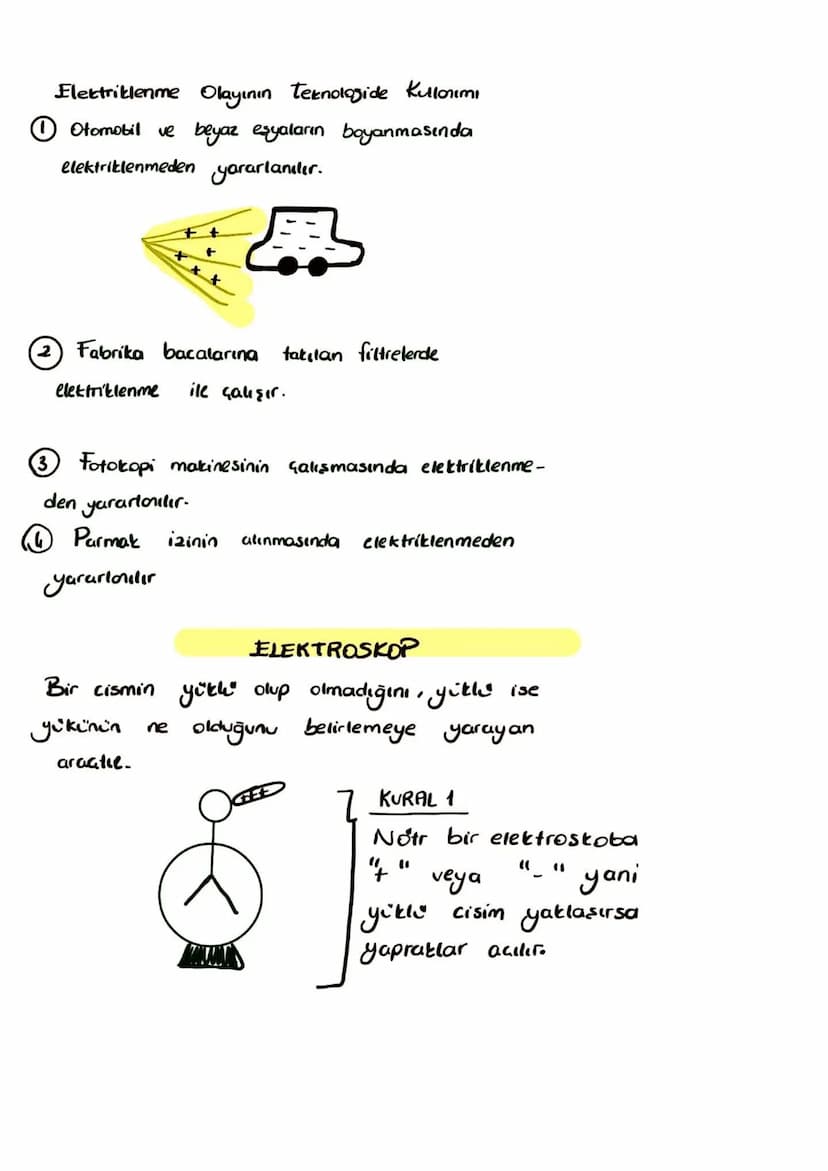 Elektriklenme Olayının Teknolojide Kullanımı
① Otomobil ve beyaz eşyaların boyanmasında
elektriklenmeden yararlanılır.
+ +
+ +
+ +
- -
- - -
- - - -
② Fabrika bacalarına takılan filtrelerde
elektriklenme ile çalışır.
③ Fotokopi makinesinin çalışmasında elektriklenme-
den yararlanılır.
④ Parmak izinin alınmasında elektriklenmeden
yararlanılır
ELEKTROSKOP
Bir cismin yüklü olup olmadığını, yüklü ise
yükünün ne olduğunu belirlemeye yarayan
araçtır.
+++
KURAL 1
Nötr bir elektroskoba
"+" veya "-" yani
yüklü cisim yaklaşırsa
yapraklar açılır.